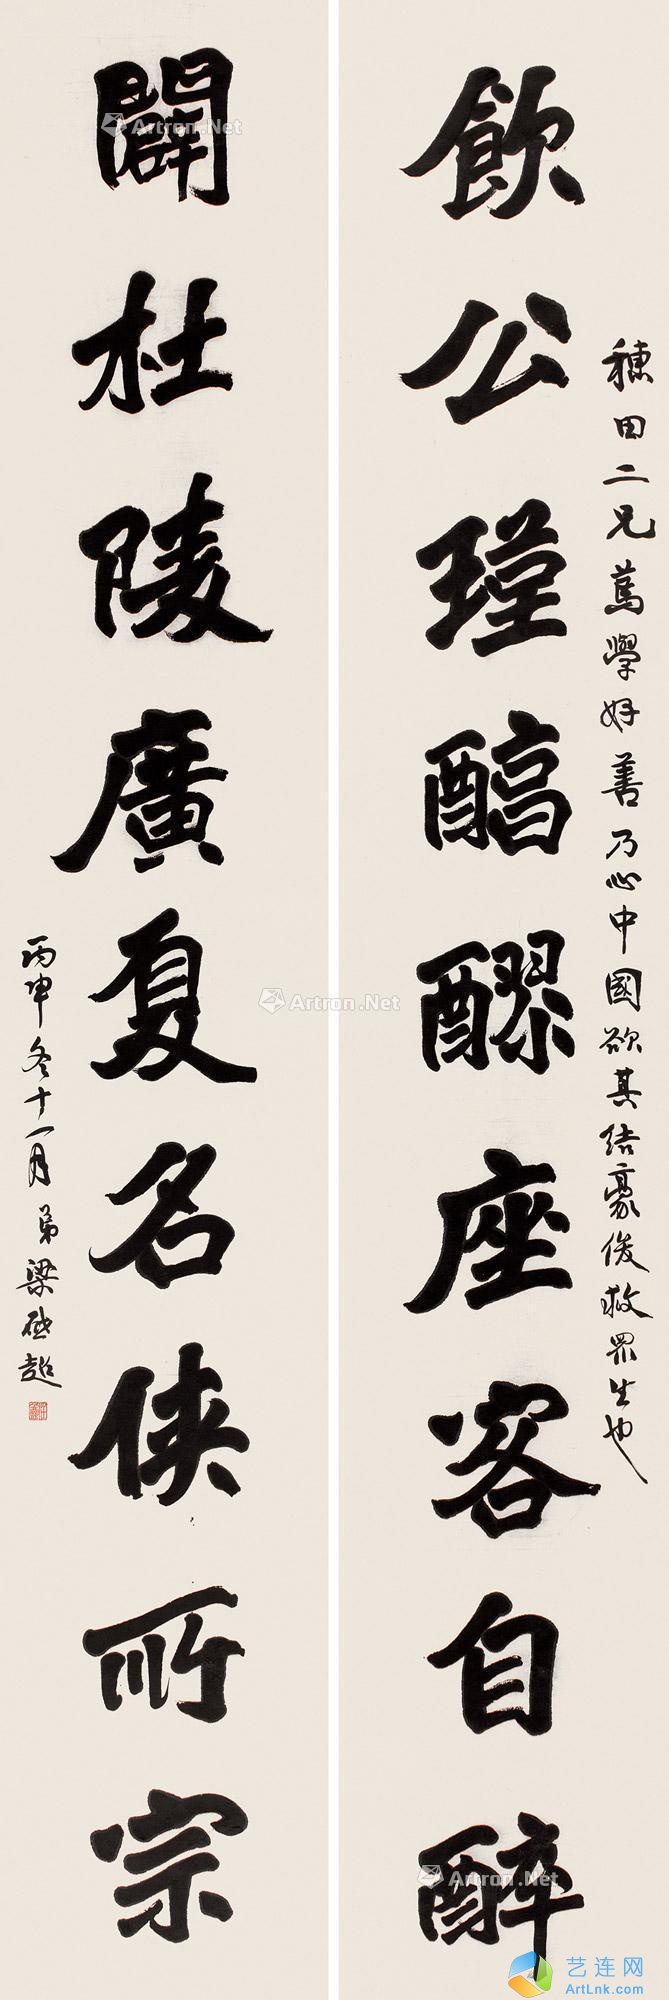 飲公瑾醕醪座客自醉
穗田二兄篤學好善乃心中國欲其結豪俊救眾生也
闢杜陵廣夏名俠所宗
丙申冬十一月弟梁啟超
Artron.Net
Artron.Net
Artron.Net
艺连网
ArtLnk.com